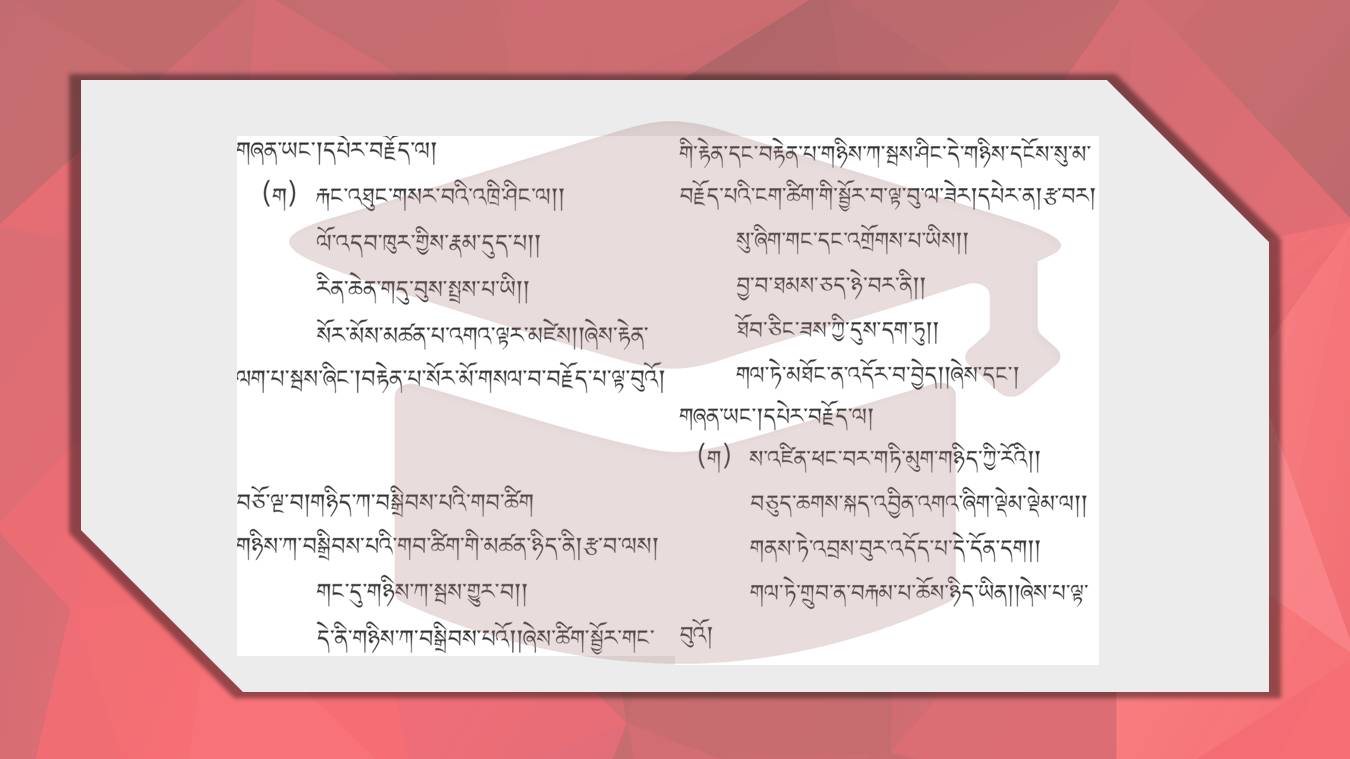 གཞན་ཡང་།དཔེར་བརྗོད་ལ།
(ག) རྐང་འཐུང་གསར་བའི་འཁྲི་ཤིང་ལ།།
ལོ་འདབ་ཁུར་གྱིས་རྣམ་དུད་པ།།
རིན་ཆེན་གདུ་བུས་སྤྲས་པ་ཡི།།
སོར་མོས་མཚན་པ་འགའ་ལྟར་མཛེས།།ཞེས་རྟེན་
ལག་པ་སྦས་ཞིང་།བརྟེན་པ་སོར་མོ་གསལ་བ་བརྗོད་པ་ལྟ་བུའོ།
བཅོ་ལྔ་བ།གཉིད་ཀ་བསྒྲིབས་པའི་གབ་ཚིག
གཉིས་ཀ་བསྒྲིབས་པའི་གབ་ཚིག་གི་མཚན་ཉིད་ནི།རྩ་བ་ལས།
གང་དུ་གཉིས་ཀ་སྦས་གྱུར་བ།།
དེ་ནི་གཉིས་ཀ་བསྒྲིབས་པའོ།།ཞེས་ཚིག་སྦྱོར་གང་
གི་རྟེན་དང་བརྟེན་པ་གཉིས་ཀ་སྦས་ཤིང་དེ་གཉིས་དངོས་སུ་མ་
བརྗོད་པའི་ངག་ཚིག་གི་སྦྱོར་བ་ལྟ་བུ་ལ་ཟེར།དཔེར་ན།རྩ་བར།
སུ་ཞིག་གང་དང་འགྲོགས་པ་ཡིས།།
བྱ་བ་ཐམས་ཅད་ཉེ་བར་ནི།།
ཐོབ་ཅིང་ཟས་ཀྱི་དུས་དག་ཏུ།།
གལ་ཏེ་མཐོང་ན་འདོར་བ་བྱེད།།ཞེས་དང་།
གཞན་ཡང་།དཔེར་བརྗོད་ལ།
(ག) ས་འཛིན་ཕང་བར་གཏི་མུག་གཉིད་ཀྱི་རོའི།།
བཅུད་ཆགས་སྐད་འབྱིན་འགའ་ཞིག་ལྡེམ་ལྡེམ་ལ།།
གནས་ཏེ་འབྲས་བུར་འདོད་པ་དེ་དོན་དག།།
གལ་ཏེ་གྲུབ་ན་བརྐམ་པ་ཆོས་ཉིད་ཡིན།།ཞེས་པ་ལྟ་
བུའོ།